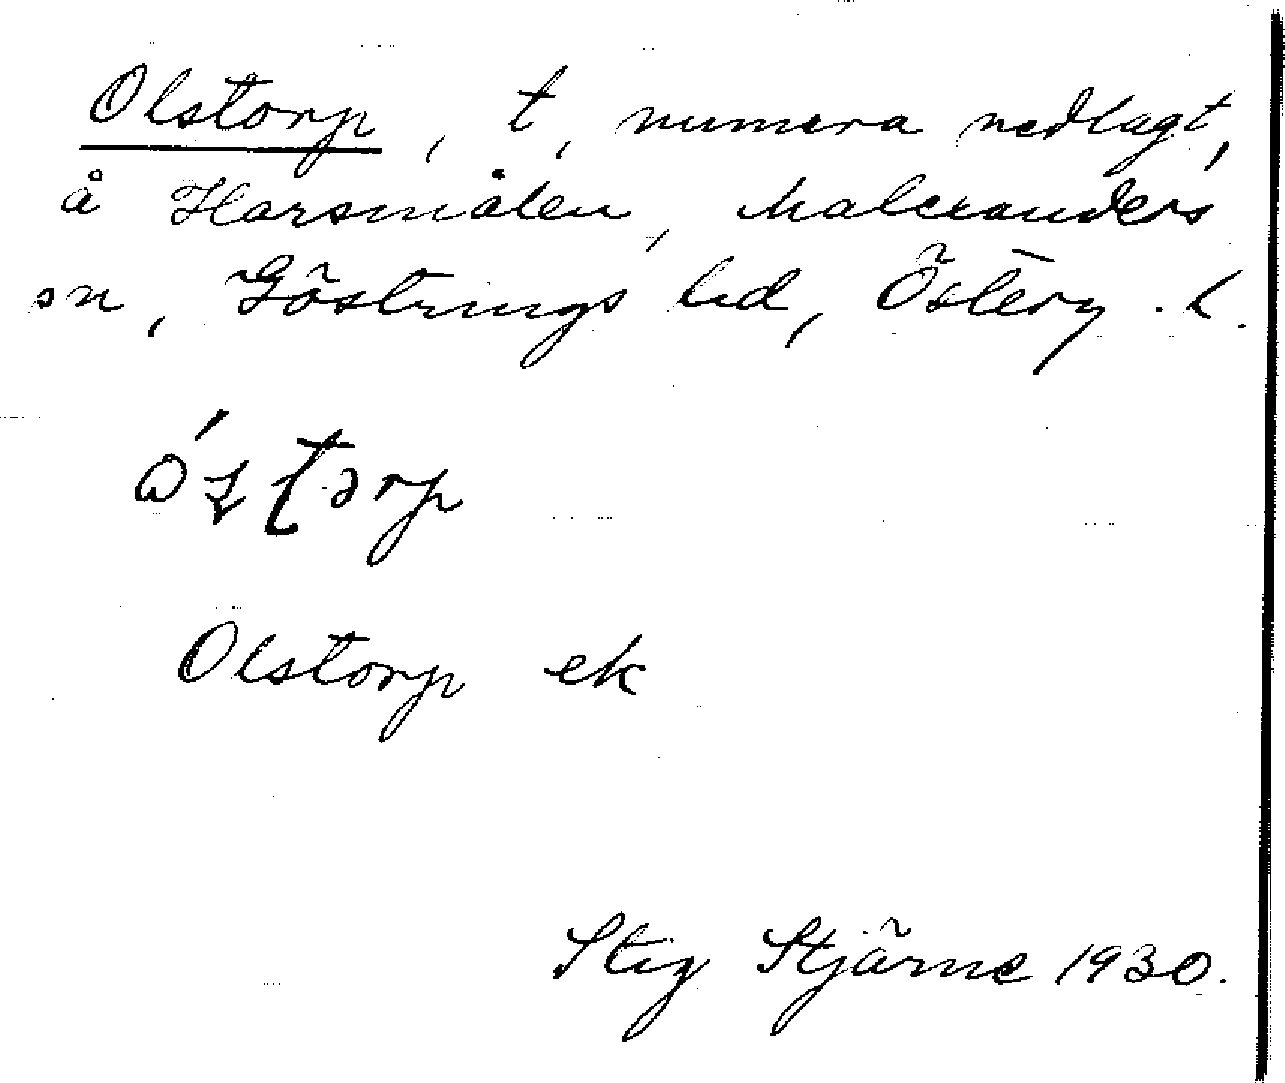 Olstorp, t, numera nedlagt,
å Harsmålen, Malexanders
sn, Göstrings hd, Österg. l.
Olstorp ek
Stig Stjärne 1930.